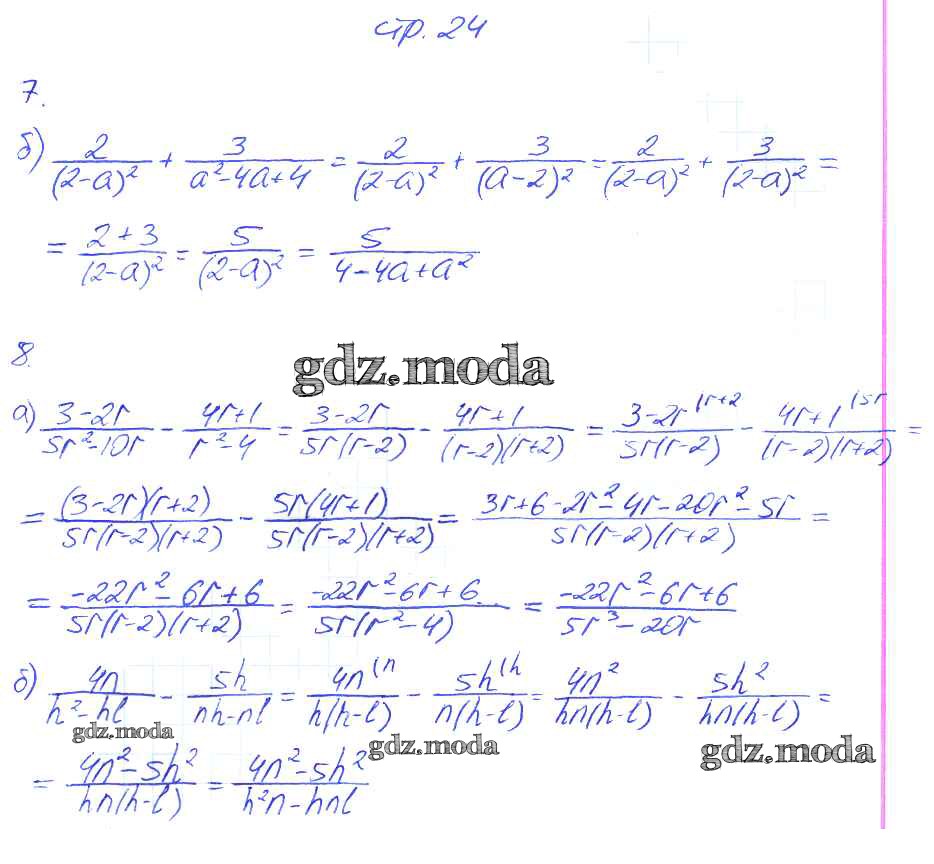 стр. 24
7.
б) 2/(2-a)² + 3/(a²-4a+4) = 2/(2-a)² + 3/(a-2)² = 2/(2-a)² + 3/(2-a)² =
= (2+3)/(2-a)² = 5/(2-a)² = 5/(4-4a+a²)
8.
gdz.moda
а) (3-2r)/(5r²-10r) - (4r+1)/(r²-4) = (3-2r)/(5r(r-2)) - (4r+1)/((r-2)(r+2)) = (3-2r)^(r+2/(5r(r-2)) - (4r+1)^(5r/((r-2)(r+2)) =
= (3-2r)(r+2)/(5r(r-2)(r+2)) - 5r(4r+1)/(5r(r-2)(r+2)) = (3r+6-2r²-4r-20r²-5r)/(5r(r-2)(r+2)) =
= (-22r²-6r+6)/(5r(r-2)(r+2)) = (-22r²-6r+6)/(5r(r²-4)) = (-22r²-6r+6)/(5r³-20r)
б) 4n/(h²-hl) - 5h/(nh-nl) = 4n^(n/(h(h-l)) - 5h^(h/(n(h-l)) = 4n²/(hn(h-l)) - 5h²/(hn(h-l)) =
gdz.moda
gdz.moda
gdz.moda
= (4n²-5h²)/(hn(h-l)) = (4n²-5h²)/(h²n-hnl)